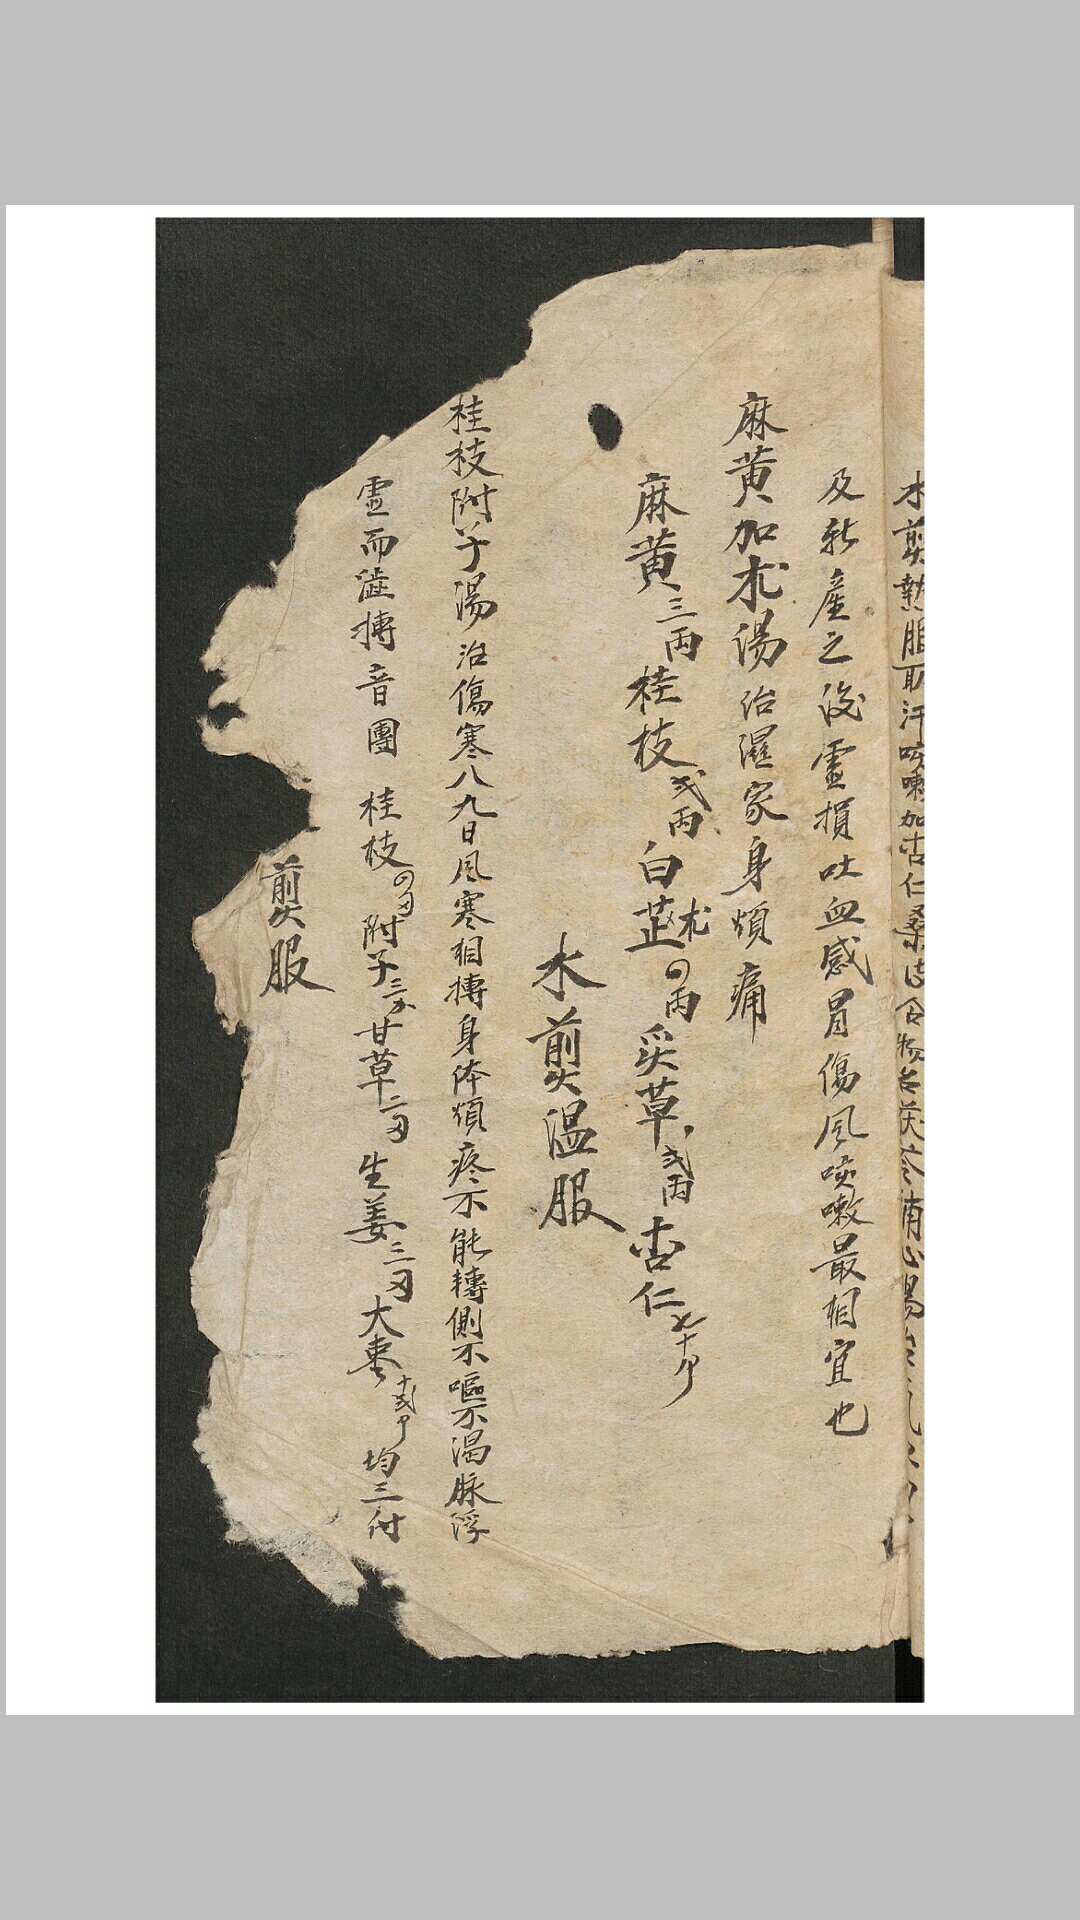 水煎熱服取汗咳嗽加杏仁桑
及新產之後虛損吐血感冒傷風咳嗽最相宜也
麻黄加朮湯治濕家身煩痛
麻黄三両桂枝弍両白朮四両炙草弍両杏仁七十個
水煎溫服
桂枝附子湯治傷寒八九日風寒相搏身体煩疼不能轉側不嘔不渴脉浮
虛而澁搏音團 桂枝四刄附子三分甘草二刄生姜三刄大枣十弍個均三付
煎服